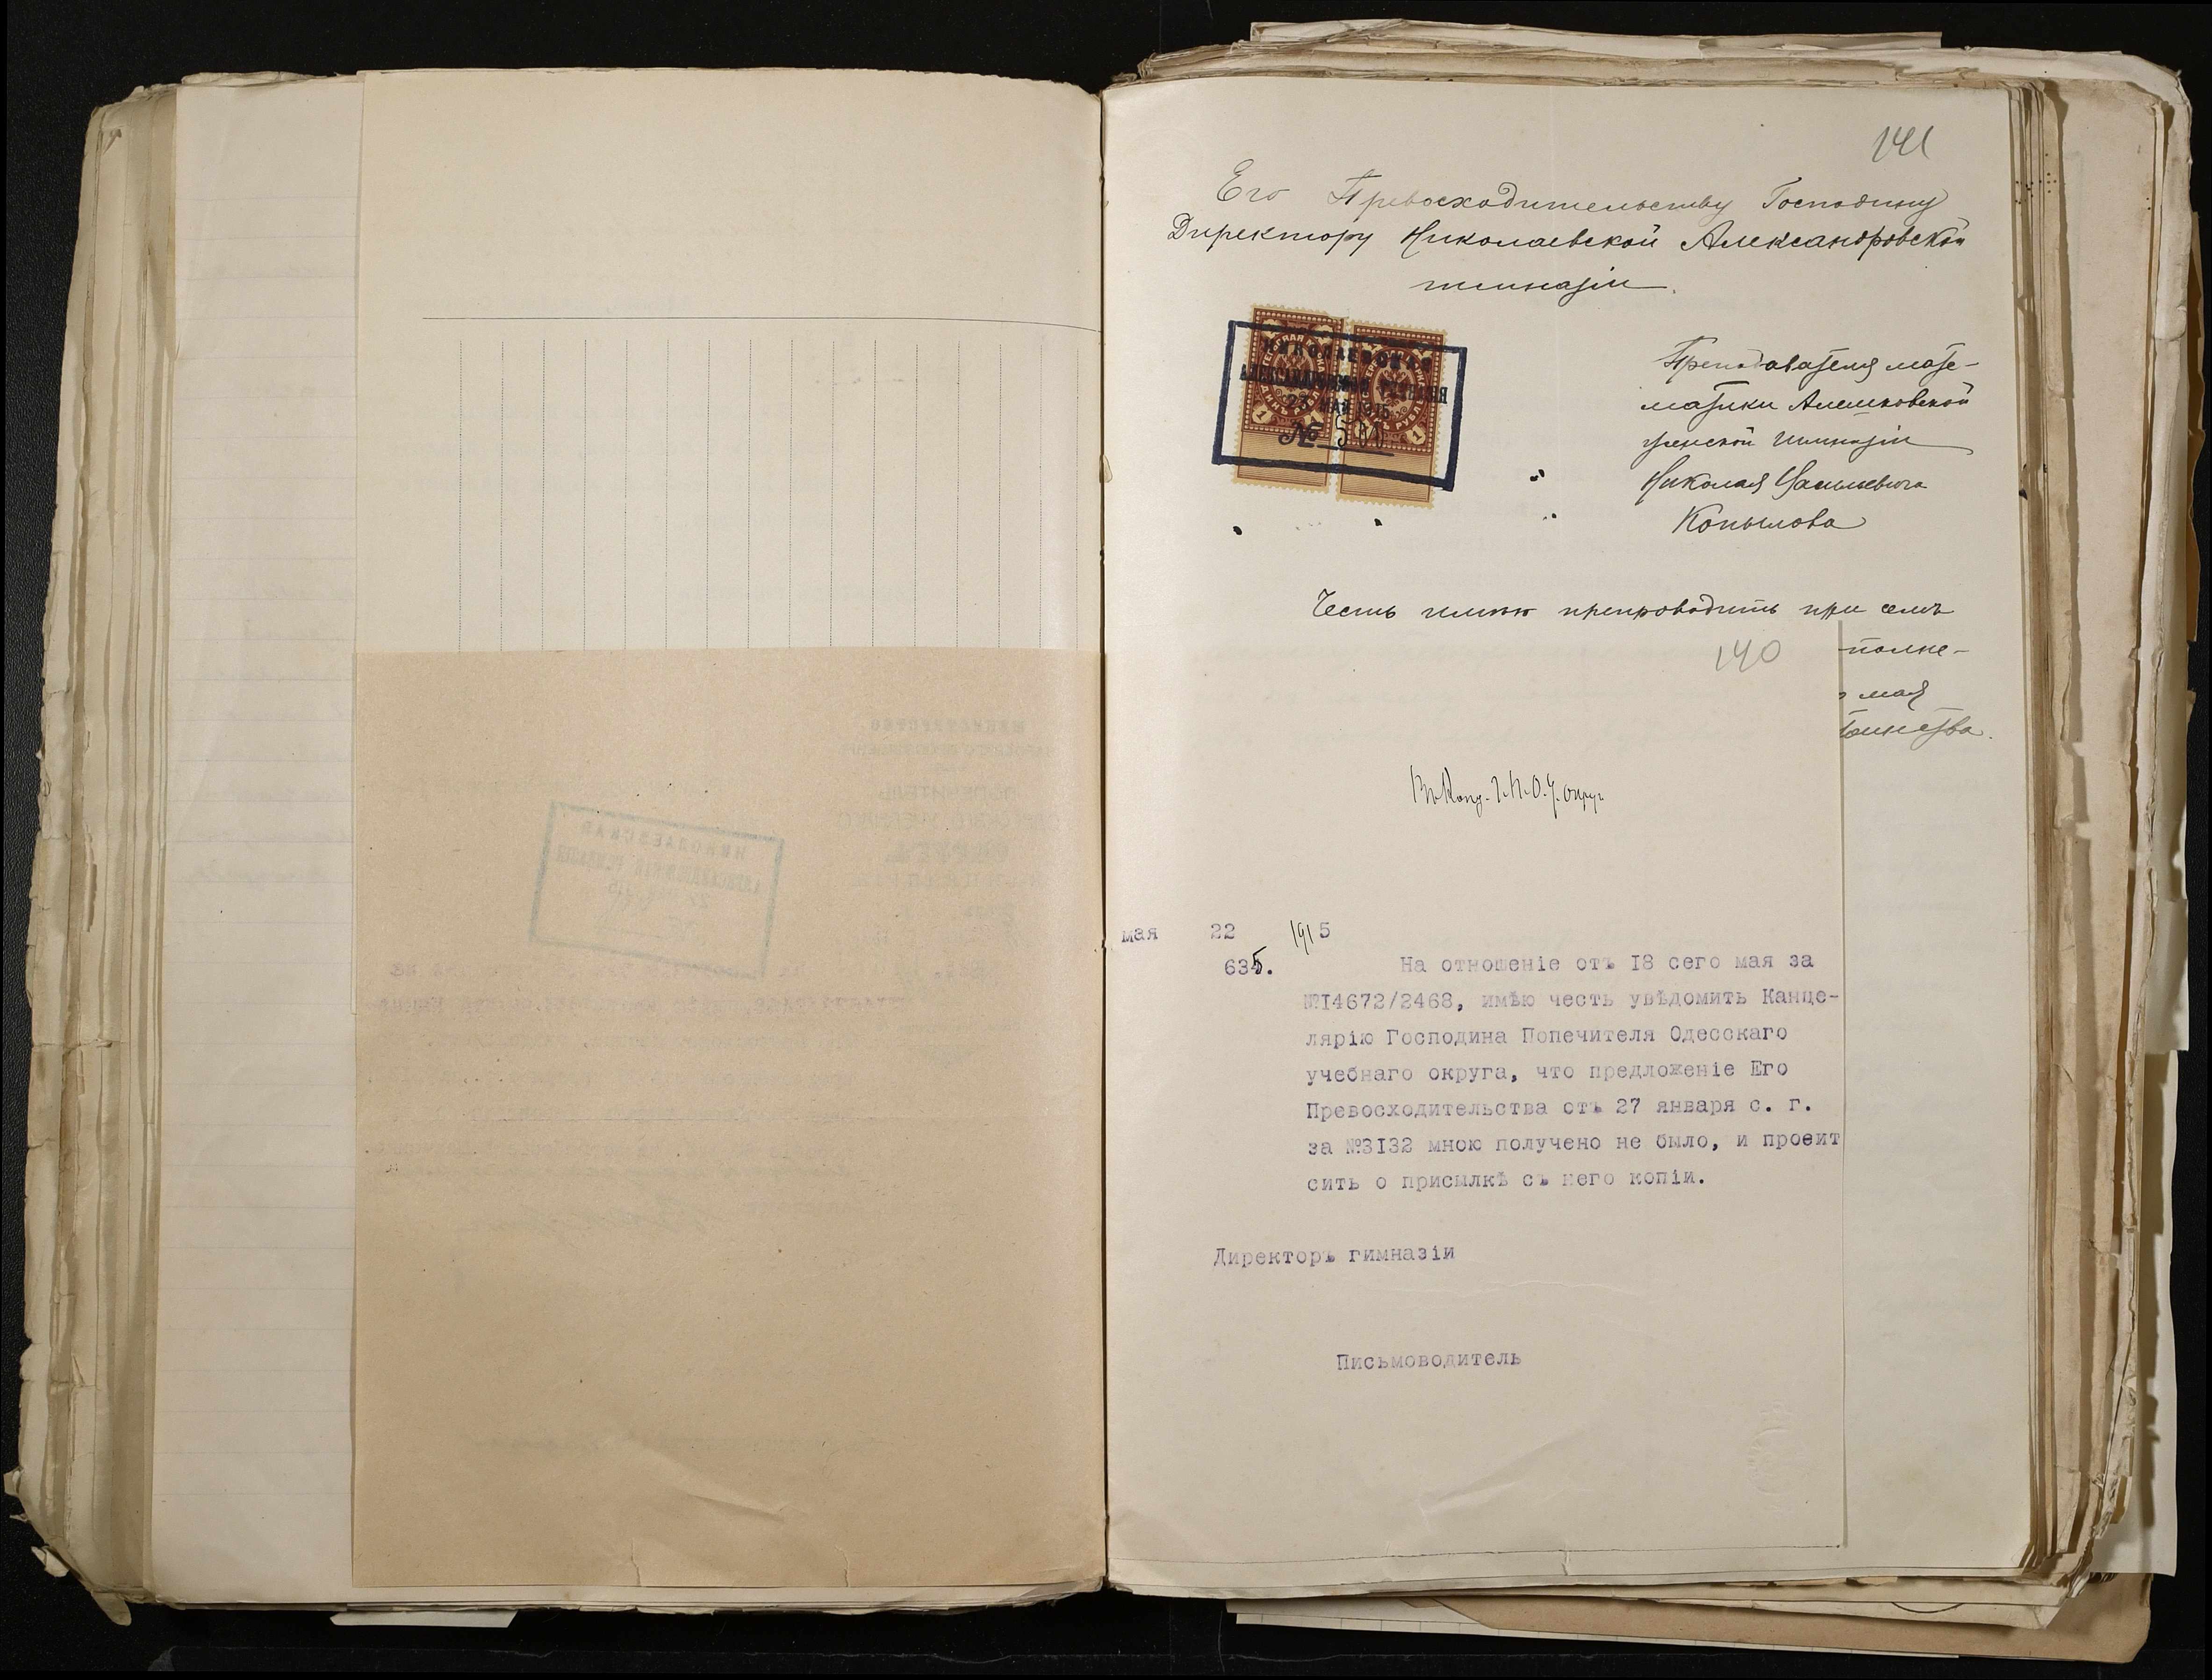 141
Его Превосходительству Господину
Директору Николаевской Александровской
гимназіи.
НИКОЛАЕВСКАЯ
АЛЕКСАНДРОВСКАЯ ГИМНАЗІЯ
23 МАЙ 1915
№
Преподавателя мате-
матики Алешковской
женской гимназіи
Николая Васильевича
Копылова
Честь имѣю препроводить при семъ
140
полне-
мая
мая
22
1915
635.
На отношеніе отъ I8 сего мая за
№I4672/2468, имѣю честь увѣдомить Канце-
лярію Господина Попечителя Одесскаго
учебнаго округа, что предложеніе Его
Превосходительства отъ 27 января с. г.
за №3I32 мною получено не было, и проеит
сить о присылкѣ съ него копіи.
Директоръ гимназіи
Письмоводитель